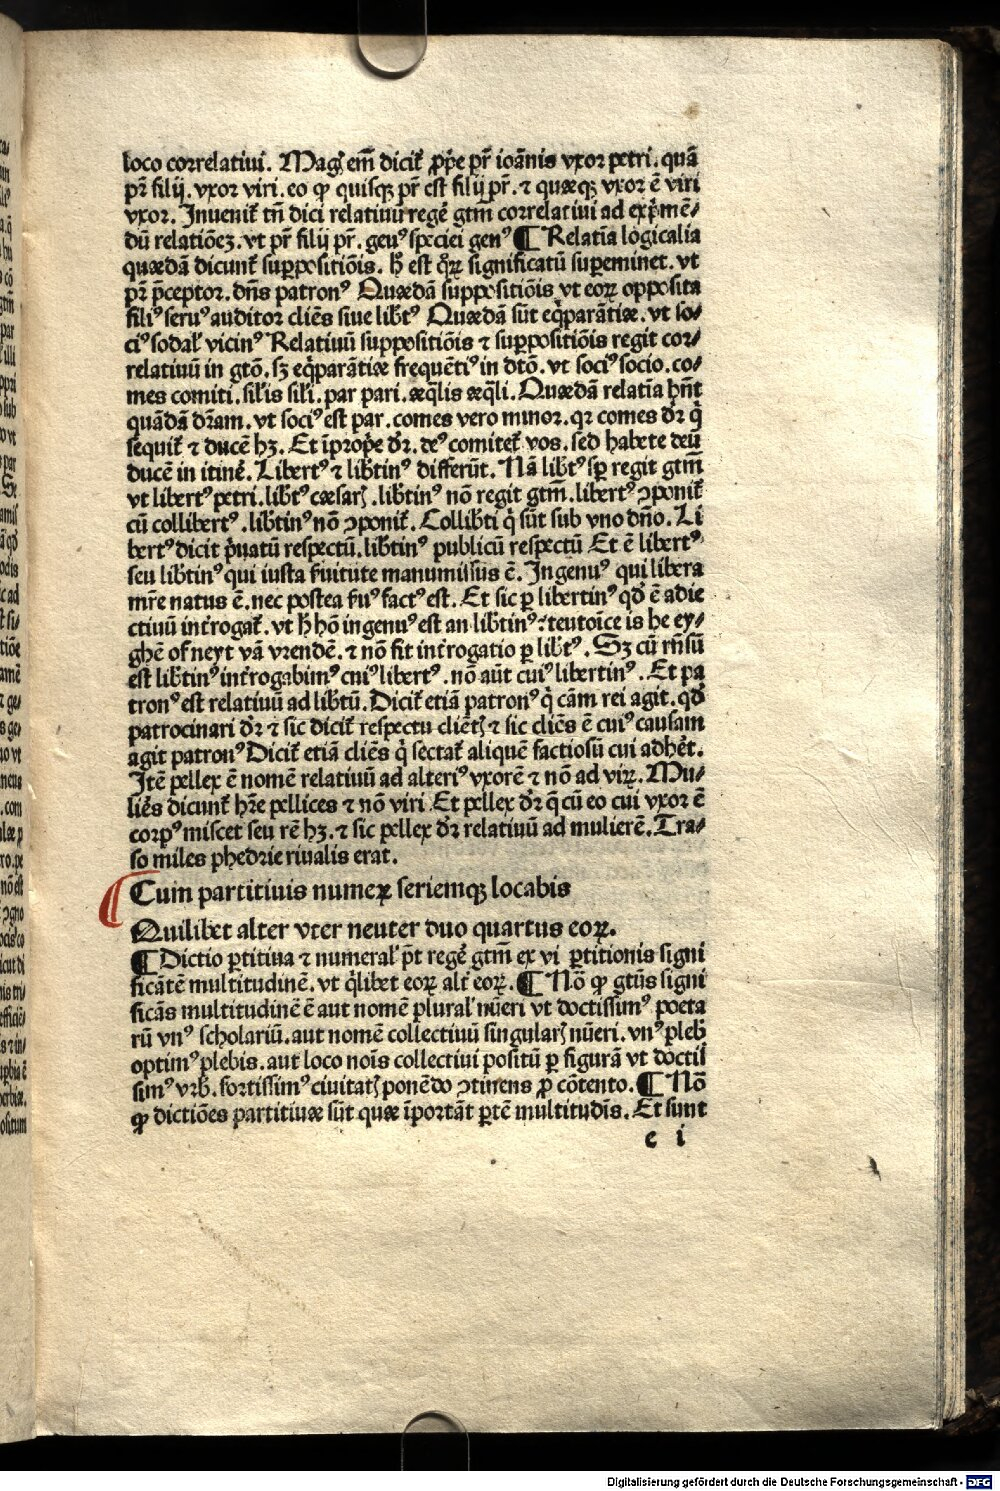 loco correlatiui. Mag̃ em̃ dicit᷑ ꝓp̃e pr̃ ioãnis vxor petri. quã
pr̃ filij. vxor viri. eo ꝙ quisqꝫ pr̃ est filij pr̃. ⁊ quæqꝫ vxor ẽ viri
vxor. Inuenit᷑ tñ dici relatiuũ regẽ gtm̃ correlatiui ad exp̃mẽ⸗
dũ relatiõeꝫ. vt pr̃ filij pr̃. genꝰ speciei genꝰ ¶ Relatĩa logicalia
quædã dicunt᷑ suppositiõis. h̃ est qꝛꝝ significatũ supeminet. vt
pr̃ p̃ceptor. dñs patronꝰ Quædã suppositiõis vt eoꝝ opposita
filiꝰ seruꝰ auditor cliẽs siue lib̃tꝰ Quædã sũt eq̃parãtiæ. vt so⸗
ciꝰ sodal᷑ vicinꝰ Relatiuũ suppositiõis ⁊ suꝑpositiõis regit cor⸗
relatiuũ in gtõ. sꝫ eq̃parãtiæ frequẽtiꝰ in dtõ. vt sociꝰ socio. co⸗
mes comiti. sil̃is sil̃i. par pari. æq̃lis æq̃li. Quædã relatĩa hñt
quãdã dr̃am. vt sociꝰ est par. comes vero minor. qꝛ comes dr̃ q̃
sequit᷑ ⁊ ducẽ hꝫ. Et ĩprop̃e dr̃. deꝰ comitet᷑ vos. sed habete deũ
ducẽ in itiñe. Libertꝰ ⁊ lib̃tinꝰ differũt. Nã lib̃tꝰ sꝑ regit gtm̃
vt libertꝰ petri. lib̃tꝰ cæsarꝭ. lib̃tinꝰ nõ regit gtm̃. libertꝰ ꝯponit᷑
cũ collibertꝰ. lib̃tinꝰ nõ ꝯponit᷑. Collib̃ti q̃ sũt sub vno dño. Li
bertꝰ dicit p̃uatũ respectũ. lib̃tinꝰ publicũ respectũ Et ẽ libertꝰ
seu lib̃tinꝰ qui iusta s̃uitute manumissus ẽ. Ingenuꝰ qui libera
mr̃e natus ẽ. nec postea s̃uꝰ factꝰ est. Et sic ꝑ libertinꝰ qd̃ ẽ adie
ctiuũ int̃rogat᷑. vt h̃ hõ ingenuꝰ est an lib̃tinꝰ: teutoice is he ey⸗
ghẽ of neyt vã vrendẽ. ⁊ nõ fit int̃rogatio ꝑ lib̃tꝰ. Sꝫ cũ rñsũ
est lib̃tinꝰ int̃rogabimꝰ cuiꝰ libertꝰ. nõ aũt cuiꝰ libertinꝰ. Et pa
tronꝰ est relatiuũ ad lib̃tũ. Dicit᷑ etiã patronꝰ q̃ cãm rei agit. qd̃
patrocinari dr̃ ⁊ sic dicit᷑ respectu cliẽtꝭ ⁊ sic cliẽs ẽ cuiꝰ causam
agit patronꝰ Dicit᷑ etiã cliẽs q̃ sectat᷑ aliquẽ factiosũ cui adhẽt.
Itẽ pellex ẽ nomẽ relatiuũ ad alteriꝰ vxorẽ ⁊ nõ ad viꝝ. Mu⸗
liẽs dicunt᷑ hr̃e pellices ⁊ nõ viri Et pellex dr̃ q̃ cũ eo cui vxor ẽ
corpꝰ miscet seu rẽ hꝫ. ⁊ sic pellex dr̃ relatiuũ ad mulierẽ. Tra⸗
so miles phedrie riualis erat.
Cum partitiuis numeꝝ seriemqꝫ locabis
Quilibet alter vter neuter duo quartus eoꝝ.
¶ Dictio ꝑtitiua ⁊ numeral᷑ pt̃ regẽ gtm̃ ex vi ꝑtitionis signi
ficãtẽ multitudinẽ. vt q̃libet eoꝝ alt̃ eoꝝ. ¶ Nõ ꝙ gtũs signi
ficãs multitudinẽ ẽ aut nomẽ plural᷑ nũeri vt doctissimꝰ poeta
rũ vnꝰ scholariũ. aut nomẽ collectiuũ singularꝭ nũeri. vnꝰ pleb̃
optimꝰ plebis. aut loco nõis collectiui positũ ꝑ figurã vt doctis
simꝰ vrb̃. fortissimꝰ ciuitatꝭ ponẽdo ꝯtinens ꝓ cõtento. ¶ Nõ
ꝙ dictiões partitiuæ sũt quæ ĩportãt ꝑtẽ multitudĩs. Et sunt
e i
Digitalisierung gefördert durch die Deutsche Forschungsgemeinschaft - DFG